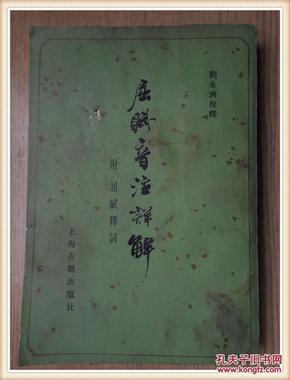 劉永濟校釋
屈賦音注詳解
附屈賦釋詞
上海古籍出版社
孔夫子旧书网